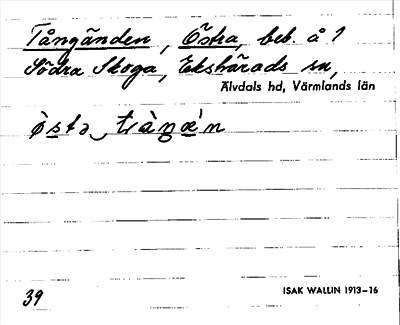 Tångänden, Östra, beb. å ?
Södra Skoga, Ekshärads sn,
Älvdals hd, Värmlands län
òstə‿ tràŋæ̀n
39
ISAK WALLIN 1913–16